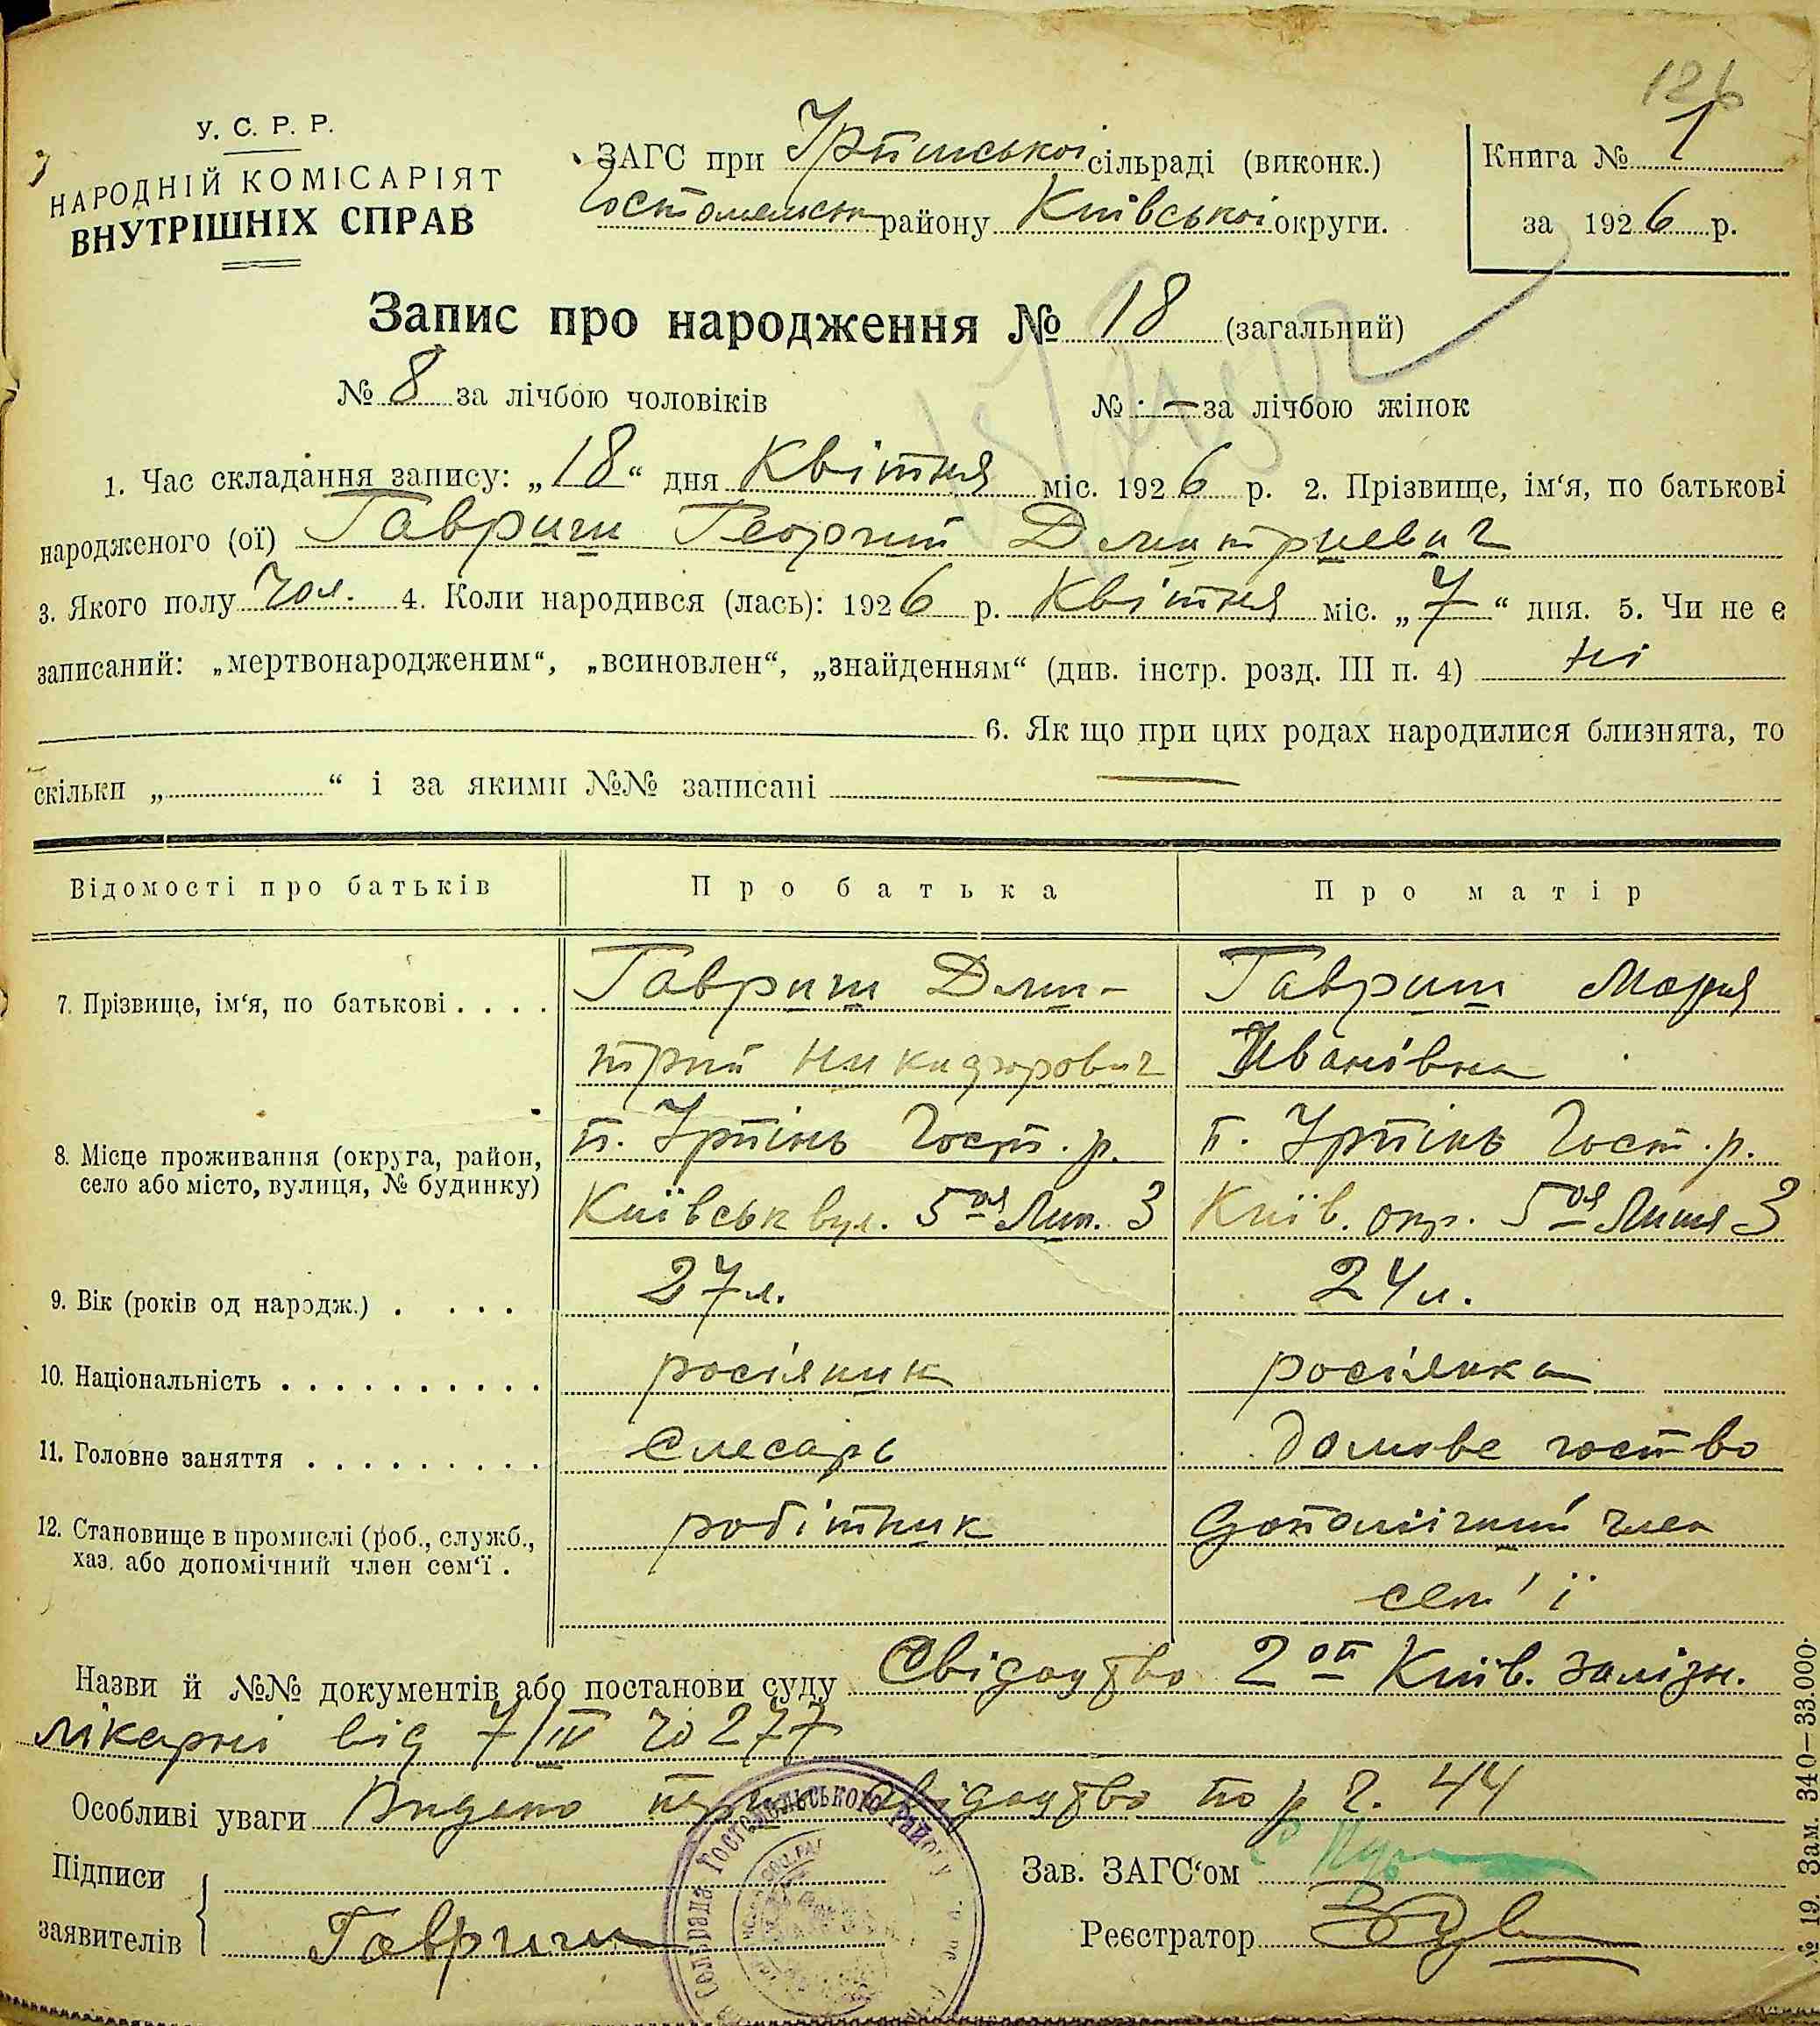 126
У. С. Р. Р.
НАРОДНІЙ КОМІСАРІЯТ
ВНУТРІШНІХ СПРАВ
ЗАГС при Ірпінської сільраді (виконк.)
Гостомельськ району Київської округи.
Книга № 1
за 1926 р.
Запис про народження № 18 (загальний)
№ 8 за лічбою чоловіків № — за лічбою жінок
1. Час складання запису: „18“ дня Квітня міс. 1926 р. 2. Прізвище, ім‘я, по батькові
народженого (ої) Гавриш Георгий Дмитриевич
3. Якого полу чол. 4. Коли народився (лась): 1926 р. Квітня міс. „7“ дня. 5. Чи не є
записаний: „мертвонародженим“, „всиновлен“, „знайденням“ (див. інстр. розд. III п. 4) ні
6. Як що при цих родах народилися близнята, то
скільки „ “ і за якими №№ записані —
Відомості про батьків Про батька Про матір
7. Прізвище, ім‘я, по батькові . . . . Гавриш Дми- Гавриш Мария
трий Никифорович Ивановна
8. Місце проживання (округа, район, п. Ірпінь Гост. р. п. Ірпінь Гост. р.
село або місто, вулиця, № будинку) Київськ вул. 5оя Лин. 3 Київ. окр. 5оя Линия 3
9. Вік (років од народж.) . . . . 27 л. 24 л.
10. Національність . . . . . . . . . . . росіяник росіянка
11. Головне заняття . . . . . . . . . Слесарь домове госп-во
12. Становище в промислі (роб., служб., робітник допоміічний член
хаз. або допомічний член сем‘ї . сем'ї
Назви й №№ документів або постанови суду Свідоцтво 2ої Київ. залізн.
лікарні від 7/IV чо 277
Особливі уваги Видано перв свідоцтво по р ч. 44
Підписи
заявителів Гавриш
Зав. ЗАГС‘ом
Реєстратор
Сельрада Гостомельського району
№ 19 Зам. 340—33.000.